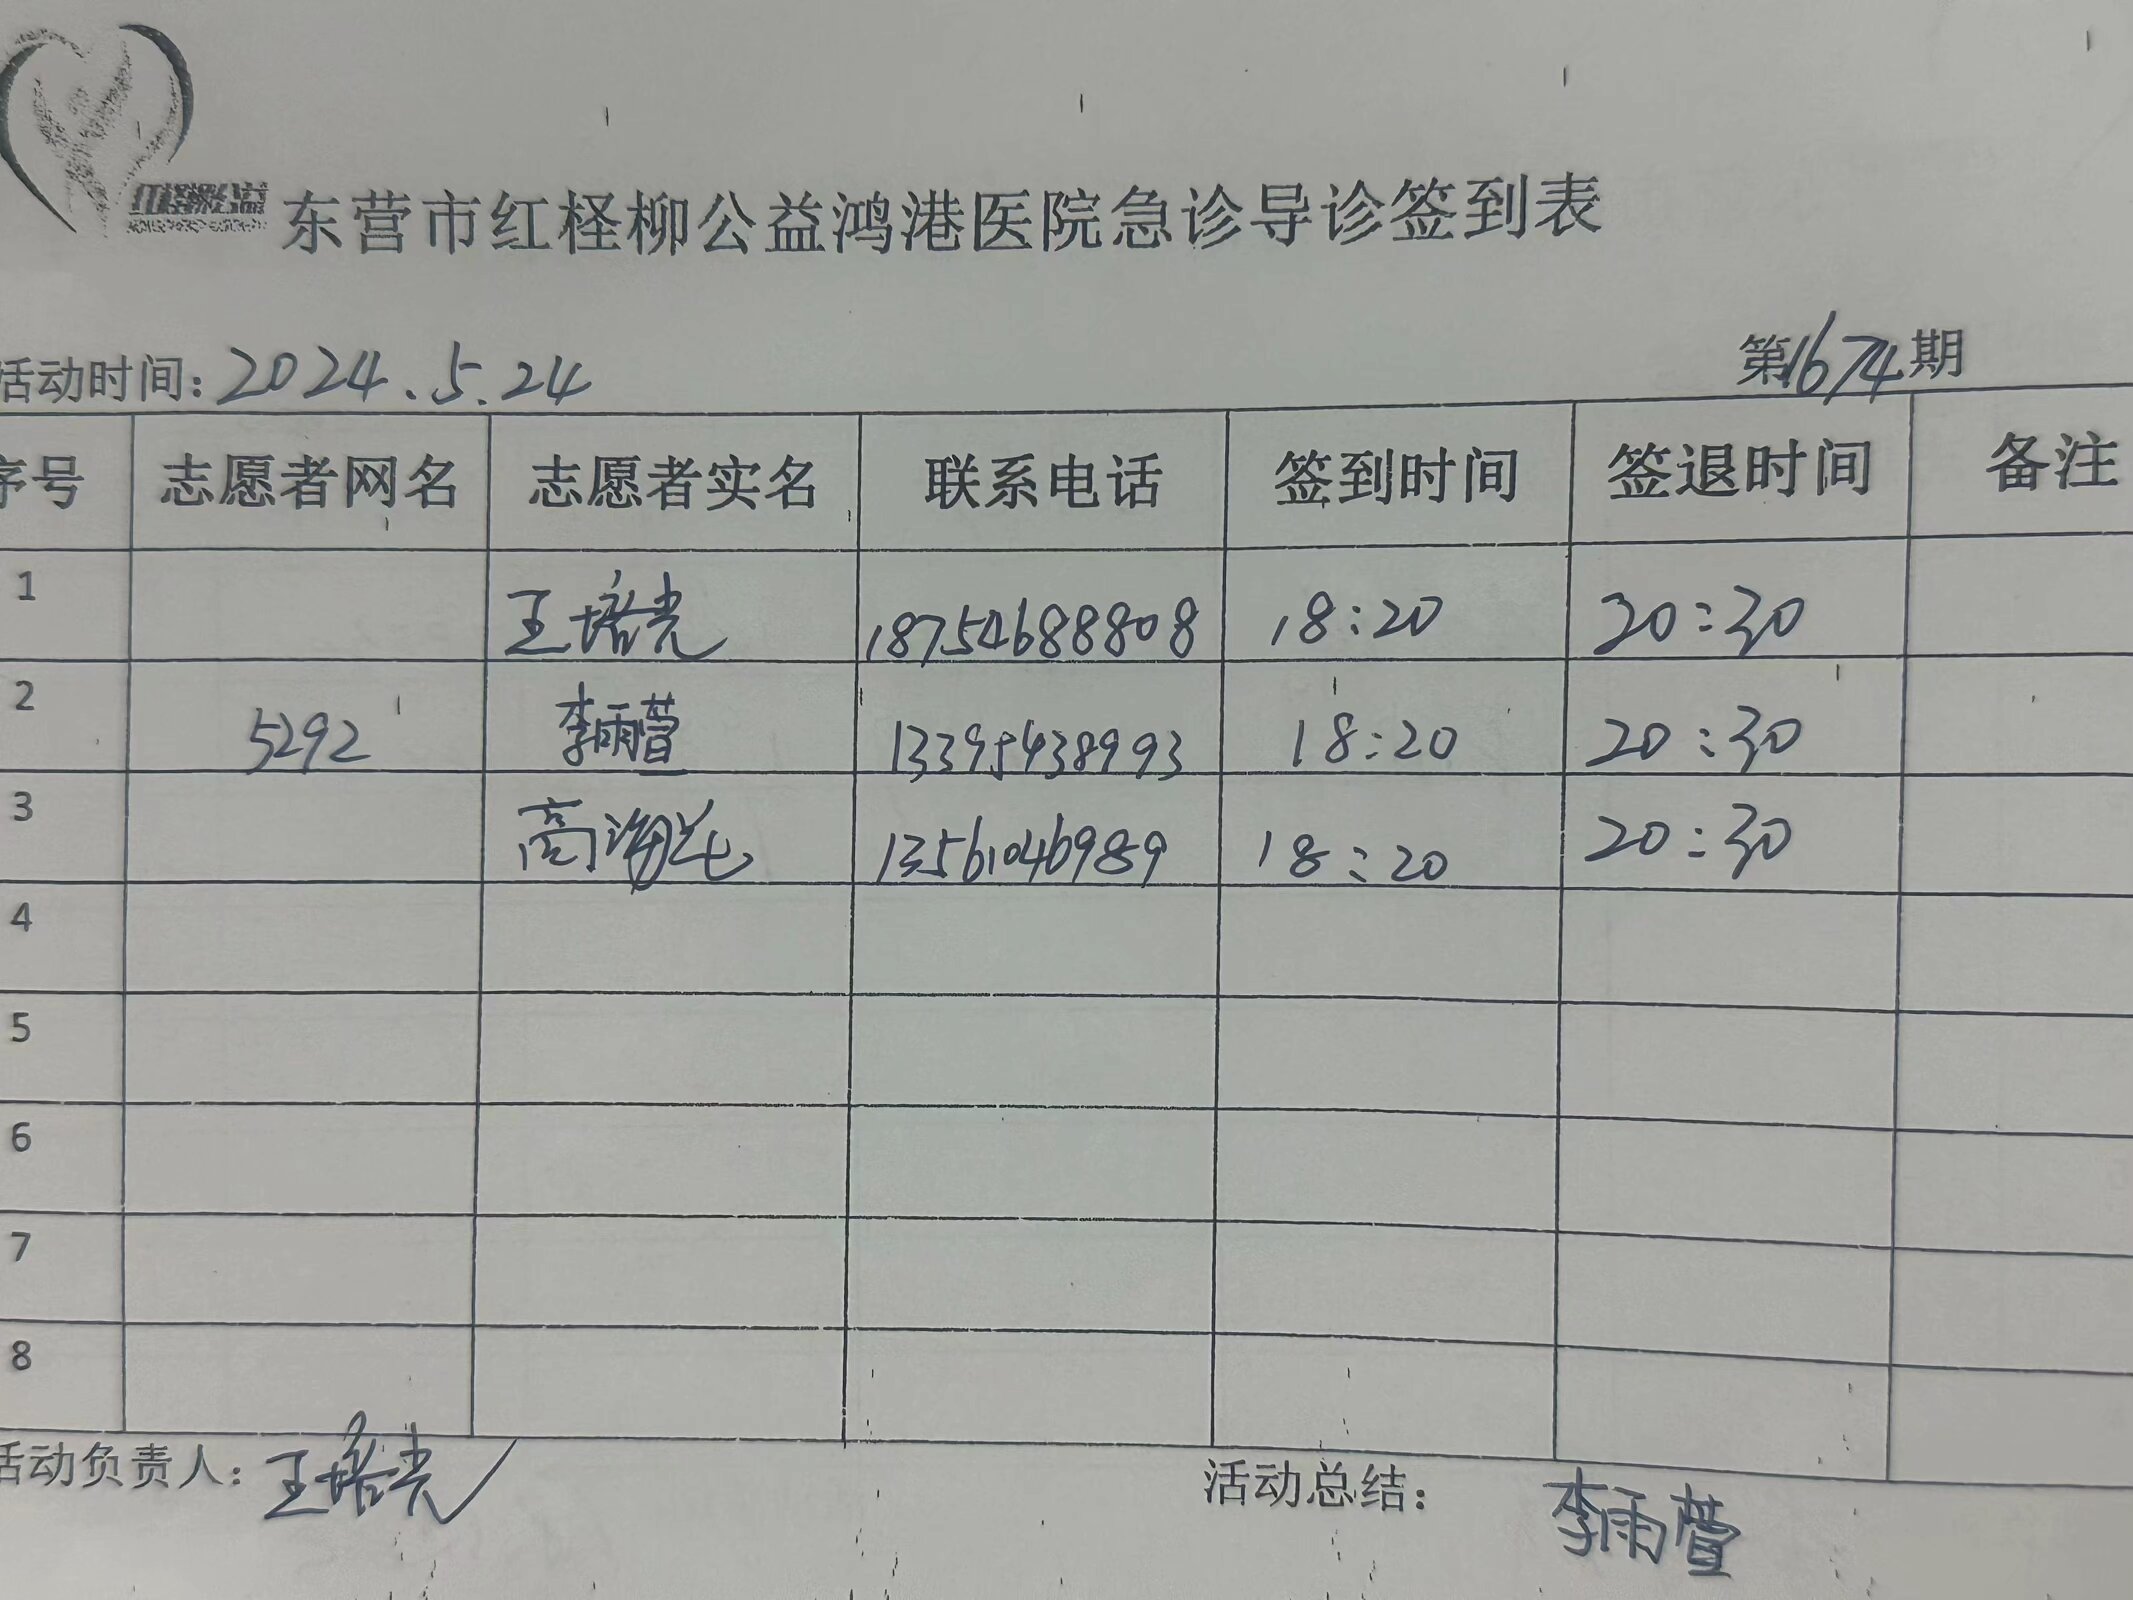 红柽柳公益
东营市红柽柳公益鸿港医院急诊导诊签到表
活动时间:2024.5.24 第1674期
序号 志愿者网名 志愿者实名 联系电话 签到时间 签退时间 备注
1 王培光 18754688808 18:20 20:30
2 5292 李雨萱 13395438993 18:20 20:30
3 高海 13561046989 18:20 20:30
4
5
6
7
8
活动负责人:王培光 活动总结: 李雨萱